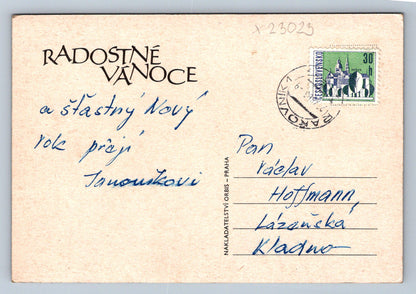 x 23029
RADOSTNÉ
VÁNOCE
a šťastný Nový
rok přejí
Janouškovi
NAKLADATELSTVÍ ORBIS - PRAHA
30 h
ČESKOSLOVENSKO
RAKOVNÍK 1
Pan
Václav
Hoffmann,
Lázeňská
Kladno